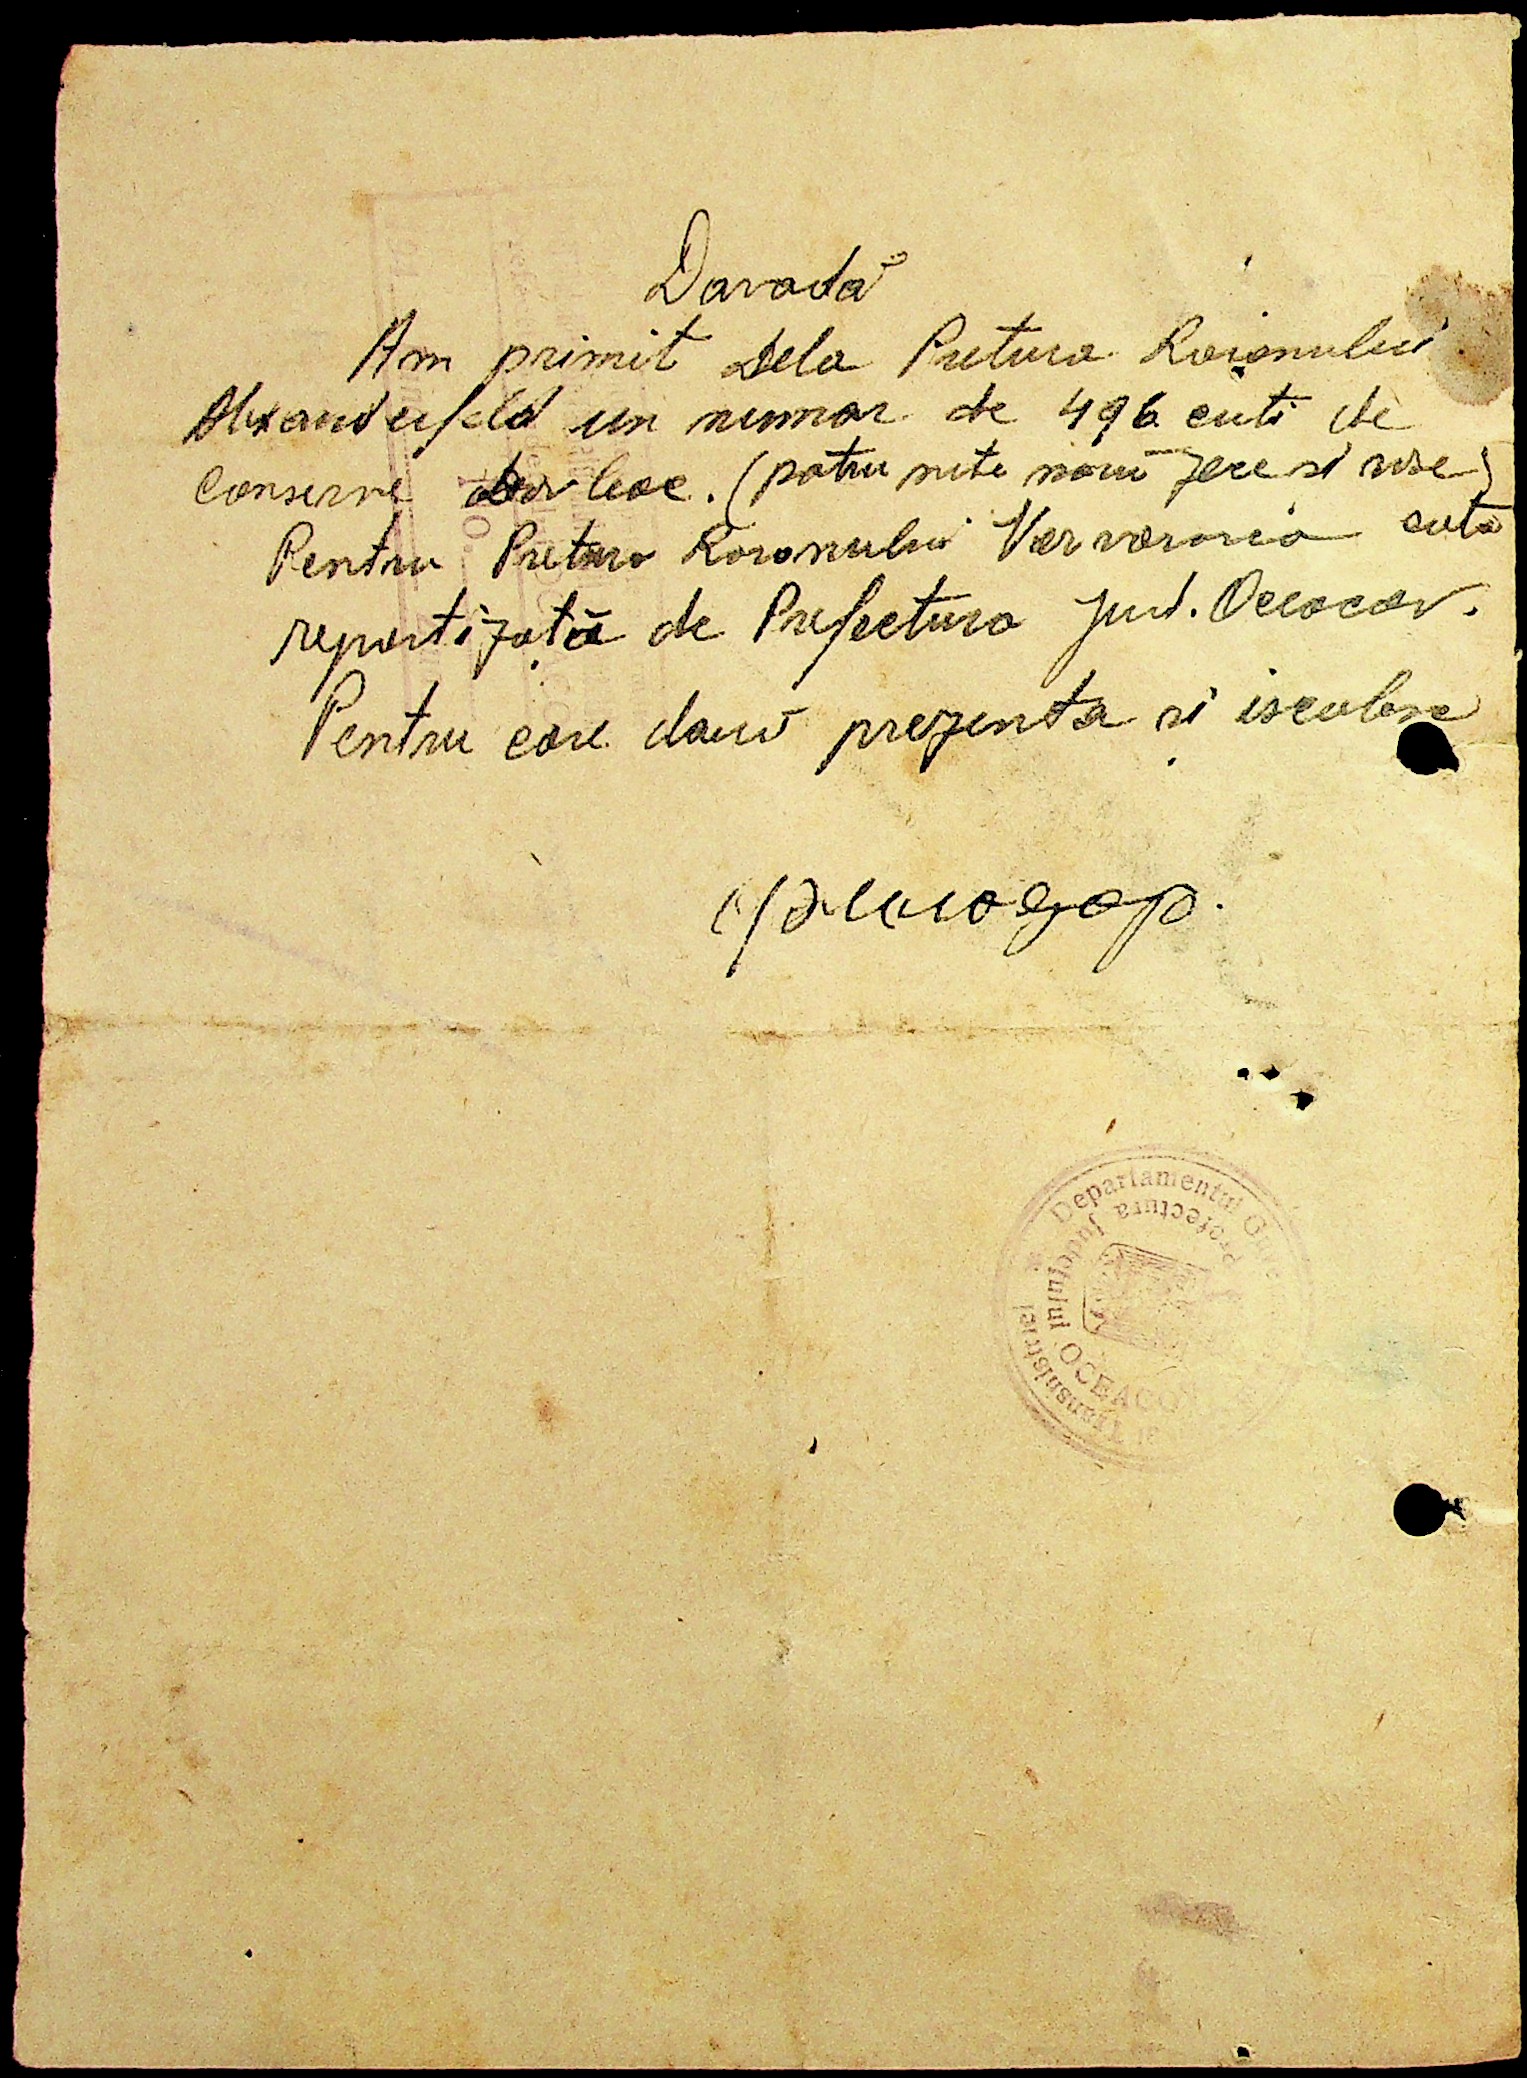 Davadă
Am primit dela Pretura Raionului
Alexanderfeld un numar de 496 cuti de
conserve (patru sute nouă zece si sase)
Pentru Pretura Raionului Varvarovca cota
repartizată de Prefectura Jud. Oceacov.
Pentru care dau prezenta si iscalesc
Departamentul
Prefectura Județului OCEACOV
Transnistriei